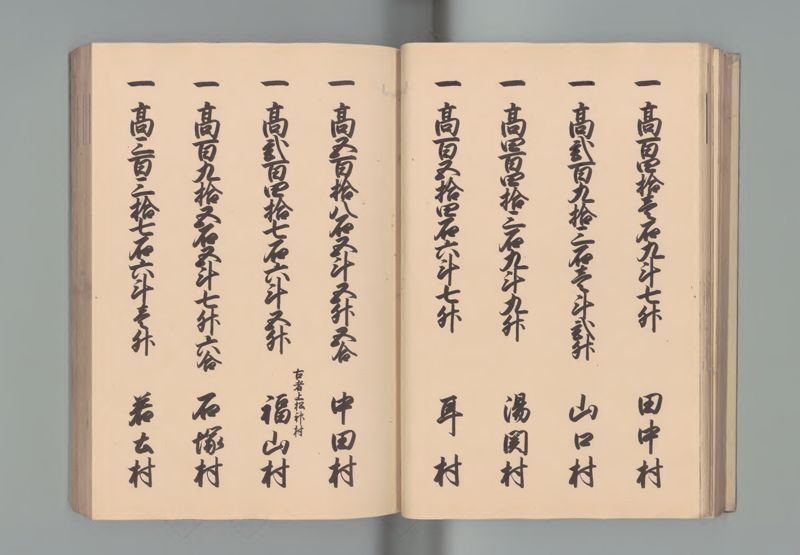 一 高百四拾壱石九斗七升 田中村
一 高弐百九拾三石壱斗弐升 山口村
一 高四百四拾三石九斗九升 湯関村
一 高百五拾四石六斗七升 耳村
一 高五百拾八石五斗五升五合 中田村
一 高弐百四拾七石六斗五升 福山村
古者上松神村
一 高百九拾五石五斗七升六合 石塚村
一 高三百三拾七石六斗壱升 若土村